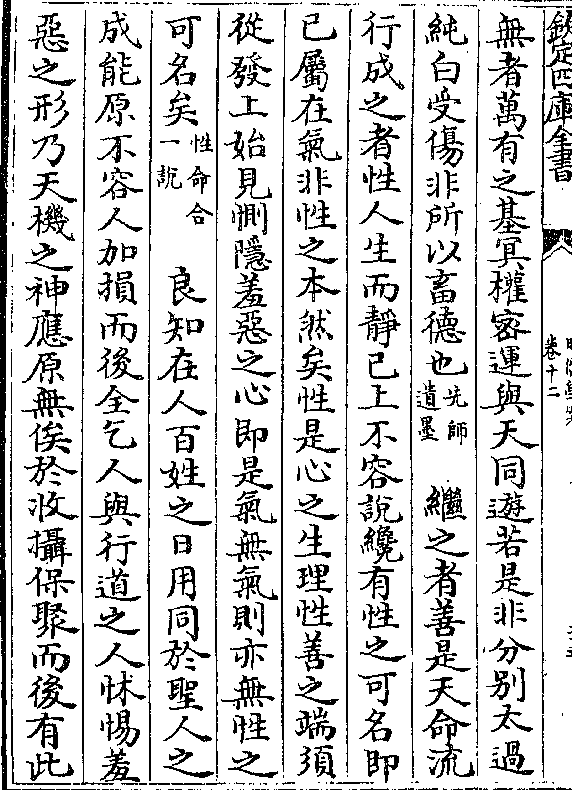 欽定四庫全書
卷十二
無者萬有之基冥權密運與天同遊若是非分别太過
純白受傷非所以畜德也先師遺墨 繼之者善是天命流
行成之者性人生而静已上不容說纔有性之可名即
已屬在氣非性之本然矣性是心之生理性善之端須
從發上始見惻隱羞惡之心即是氣無氣則亦無性之
可名矣性命合一說 良知在人百姓之日用同於聖人之
成能原不容人加損而後全乞人與行道之人怵惕羞
惡之形乃天機之神應原無俟於收攝保聚而後有此